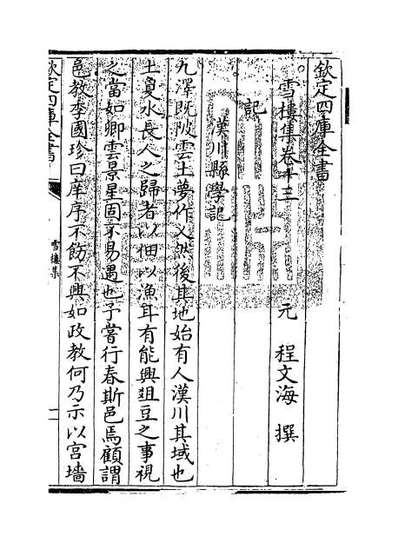 欽定四庫全書
雪樓集卷十三
元 程文海 撰
記
漢川縣學記
九澤既陂雲土夢作乂然後其地始有人漢川其域也
土臭水長人之歸者以佃以漁耳有能興俎豆之事視
之當如卿雲景星固未易遇也予嘗行春斯邑焉顧謂
邑教李國珍曰庠序不飭不興如政教何乃示以宮墻
欽定四庫全書
雪樓集
一